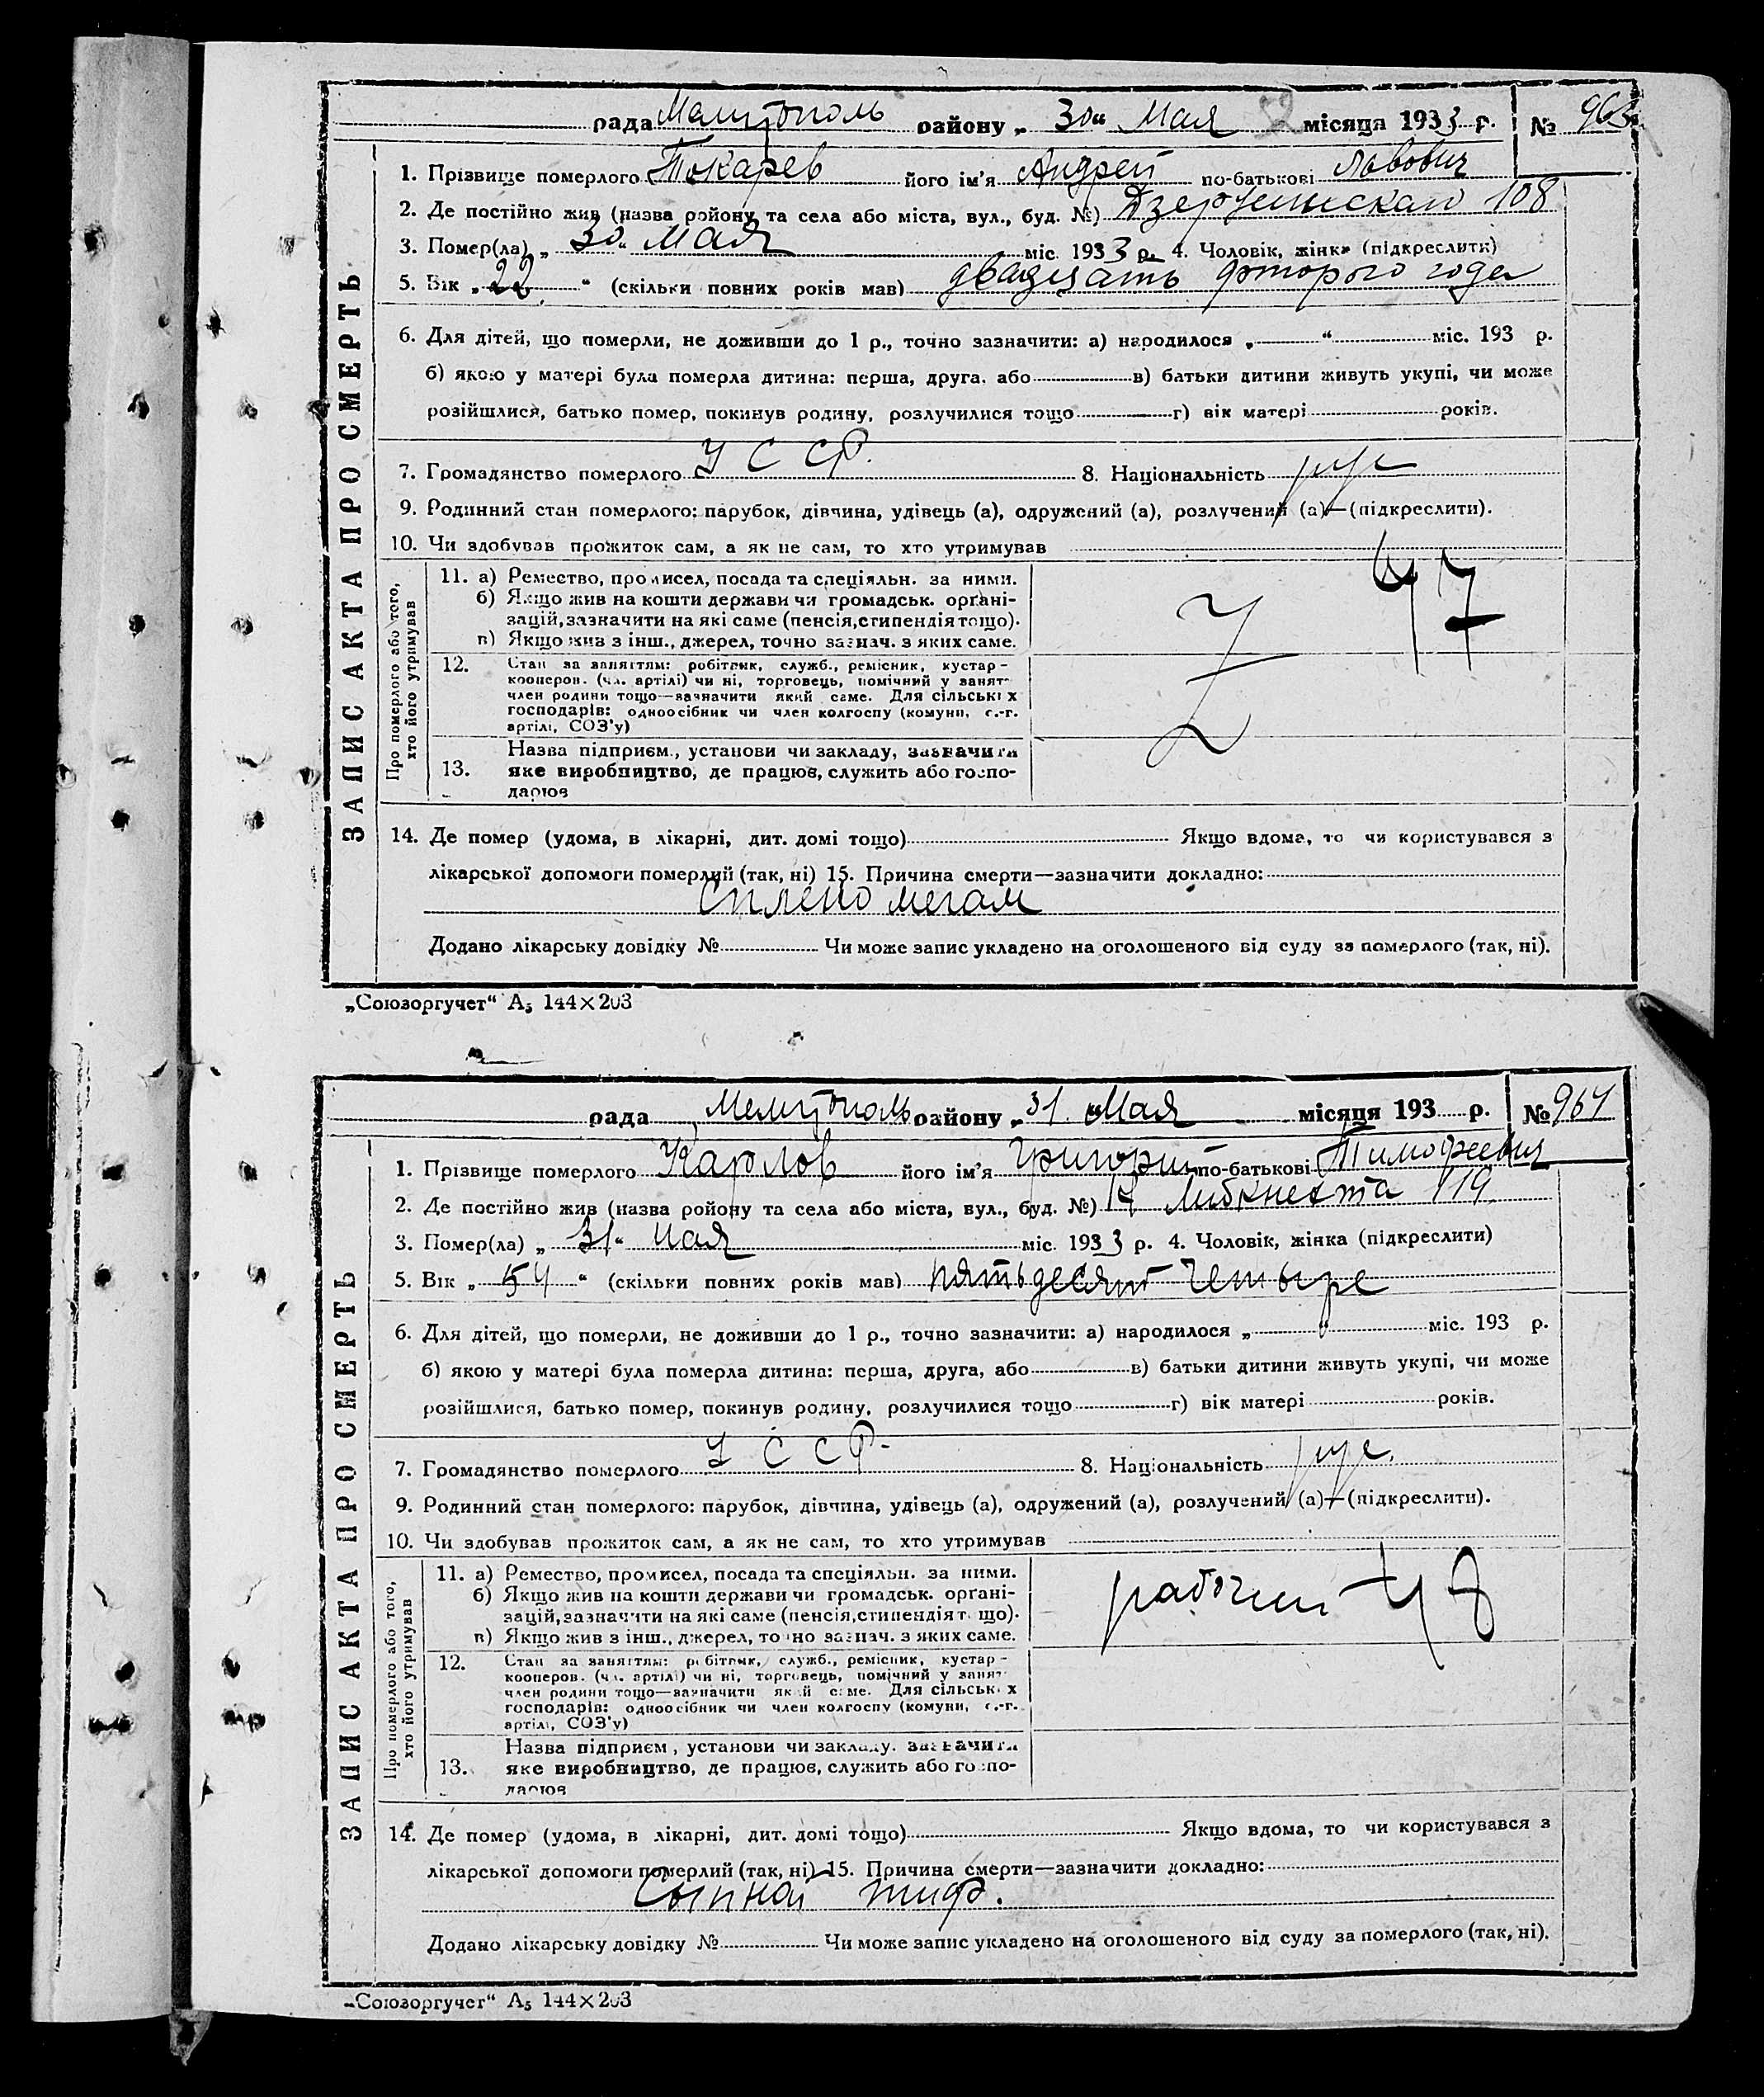 рада Мелитополь району „ 30 “ Мая місяця 1933 р. № 963
1. Прізвище померлого Токарев його ім'я Андрей по-батькові Львович
2. Де постійно жив (назва району та села або міста, вул., буд. №) Дзержинская 108
3. Помер(ла) „ 30 “ Мая міс. 1933 р. 4. Чоловік, жінка (підкреслити)
5. Вік „ 22 “ (скільки повних років мав) двадцать второго года
6. Для дітей, що померли, не доживши до 1 р., точно зазначити: а) народилося „ “ міс. 193 р.
б) якою у матері була померла дитина: перша, друга, або в) батьки дитини живуть укупі, чи може
розійшлися, батько помер, покинув родину, розлучилися тощо г) вік матері років.
7. Громадянство померлого У С С Р. 8. Національність рус
9. Родинний стан померлого: парубок, дівчина, удівець (а), одружений (а), розлучений (а)—(підкреслити).
10. Чи здобував прожиток сам, а як не сам, то хто утримував
ЗАПИС АКТА ПРО СМЕРТЬ
Про померлого або того,
хто його утримував
11. а) Ремество, промисел, посада та спеціяльн. за ними.
б) Якщо жив на кошти держави чи громадськ. орґані-
зацій, зазначити на які саме (пенсія, стипендія тощо).
в) Якщо жив з інш., джерел, точно зазнач. з яких саме.
47
12. Стан за заняттям: робітник, служб., ремісник, кустар-
кооперов. (чл. артілі) чи ні, торговець, помічний у занят
член родини тощо—зазначити який саме. Для сільських
господарів: одноосібник чи член колгоспу (комуни, с.-г.
артілі, СОЗ'у)
13. Назва підприєм., установи чи закладу, зазначити
яке виробництво, де працює, служить або госпо-
дарює
14. Де помер (удома, в лікарні, дит. домі тощо) Якщо вдома, то чи користувався з
лікарської допомоги померлий (так, ні) 15. Причина смерти—зазначити докладно:
Сплено мегал
Додано лікарську довідку № Чи може запис укладено на оголошеного від суду за померлого (так, ні).
„Союзоргучет“ А₅ 144×203
рада Мелитополь району „ 31 “ Мая місяця 193 р. № 964
1. Прізвище померлого Карлов його ім'я Григорий по-батькові Тимофеевич
2. Де постійно жив (назва району та села або міста, вул., буд. №) К Либкнехта 119
3. Помер(ла) „ 31 “ Мая міс. 1933 р. 4. Чоловік, жінка (підкреслити)
5. Вік „ 54 “ (скільки повних років мав) пятьдесят четыре
6. Для дітей, що померли, не доживши до 1 р., точно зазначити: а) народилося „ “ міс. 193 р.
б) якою у матері була померла дитина: перша, друга, або в) батьки дитини живуть укупі, чи може
розійшлися, батько помер, покинув родину, розлучилися тощо г) вік матері років.
7. Громадянство померлого У С С Р. 8. Національність рус.
9. Родинний стан померлого: парубок, дівчина, удівець (а), одружений (а), розлучений (а)—(підкреслити).
10. Чи здобував прожиток сам, а як не сам, то хто утримував
ЗАПИС АКТА ПРО СМЕРТЬ
Про померлого або того,
хто його утримував
11. а) Ремество, промисел, посада та спеціяльн. за ними.
б) Якщо жив на кошти держави чи громадськ. орґані-
зацій, зазначити на які саме (пенсія, стипендія тощо).
в) Якщо жив з інш., джерел, точно зазнач. з яких саме.
рабочий 48
12. Стан за заняттям: робітник, служб., ремісник, кустар-
кооперов. (чл. артілі) чи ні, торговець, помічний у занят
член родини тощо—зазначити який саме. Для сільських
господарів: одноосібник чи член колгоспу (комуни, с.-г.
артілі, СОЗ'у)
13. Назва підприєм., установи чи закладу, зазначити
яке виробництво, де працює, служить або госпо-
дарює
14. Де помер (удома, в лікарні, дит. домі тощо) Якщо вдома, то чи користувався з
лікарської допомоги померлий (так, ні) 15. Причина смерти—зазначити докладно:
Сыпной тиф.
Додано лікарську довідку № Чи може запис укладено на оголошеного від суду за померлого (так, ні).
„Союзоргучет“ А₅ 144×203